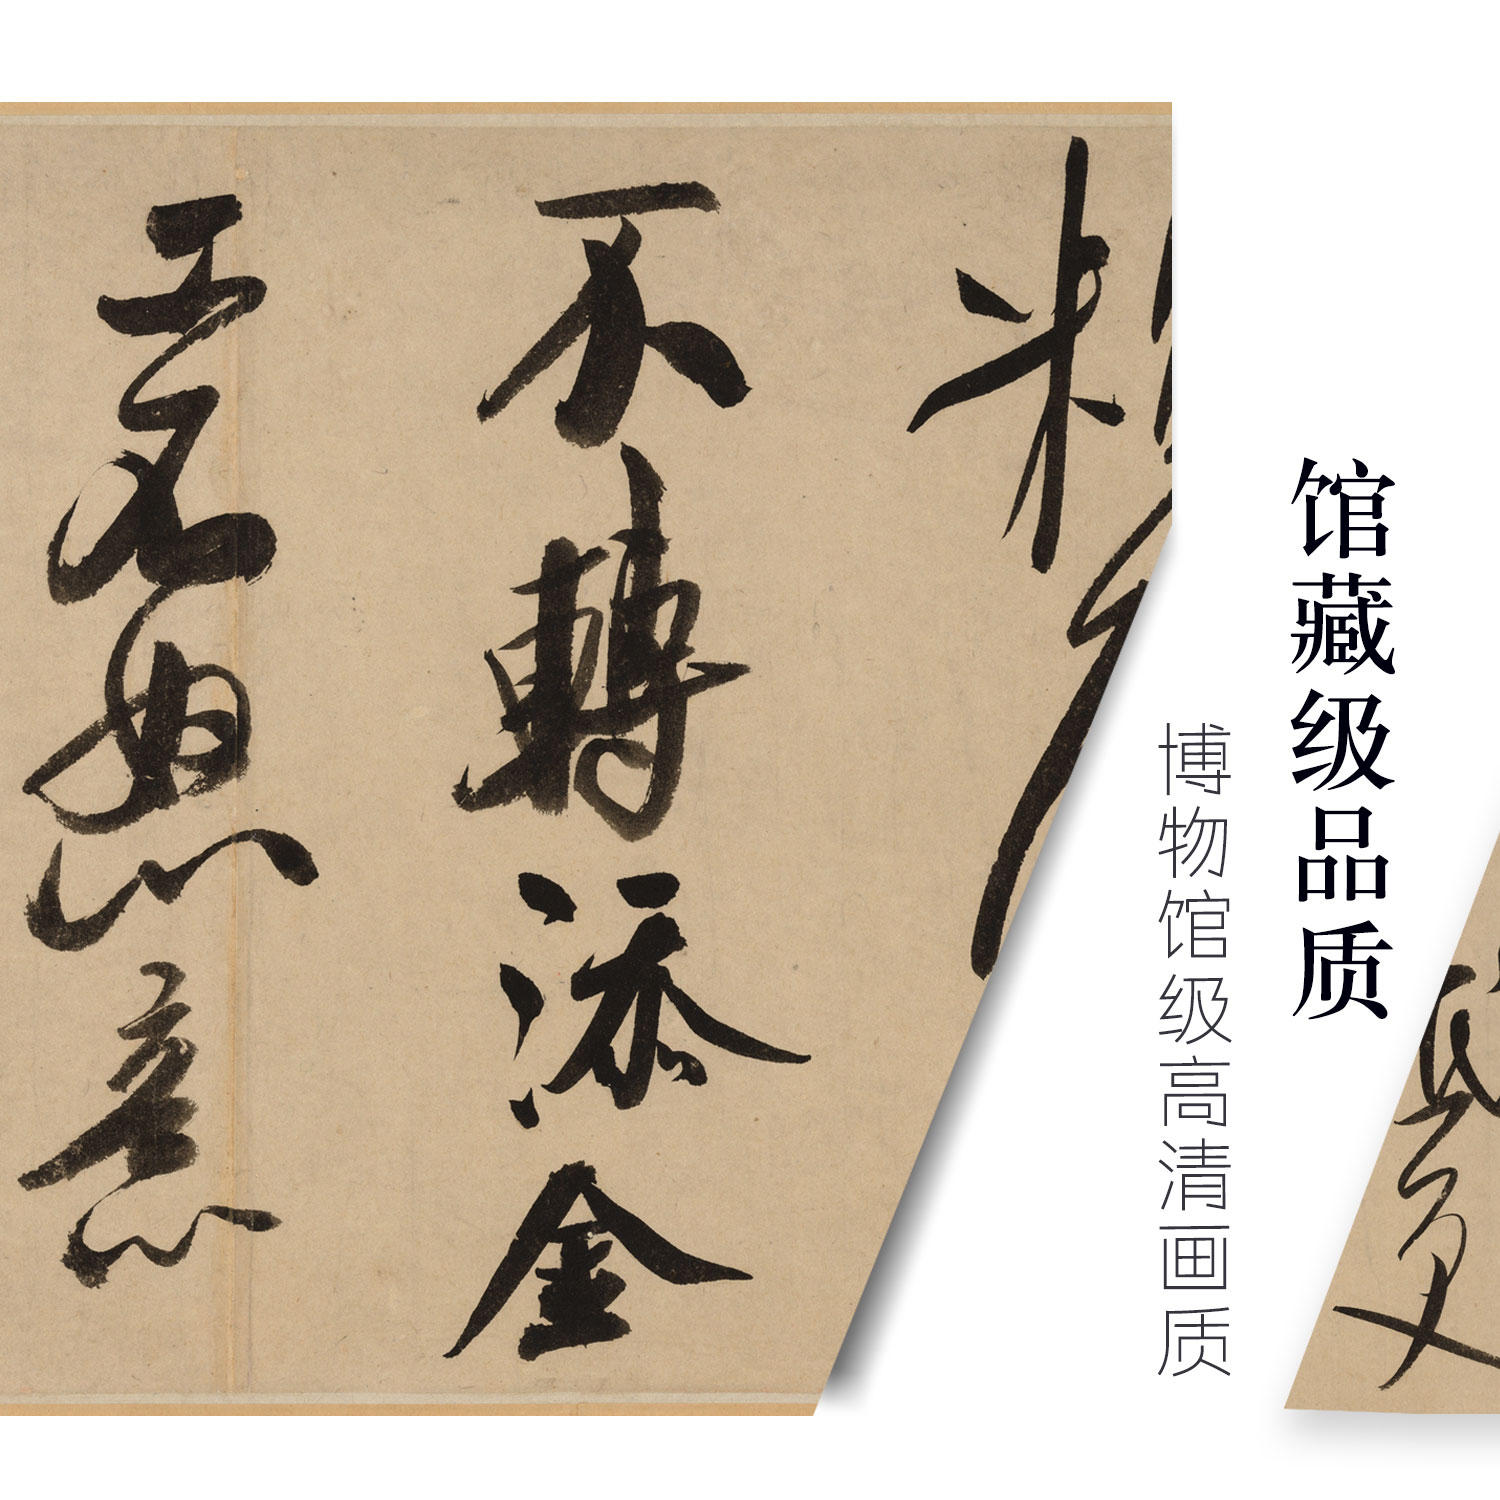 馆藏级品质
博物馆级高清画质
不轉添金
工不怒意